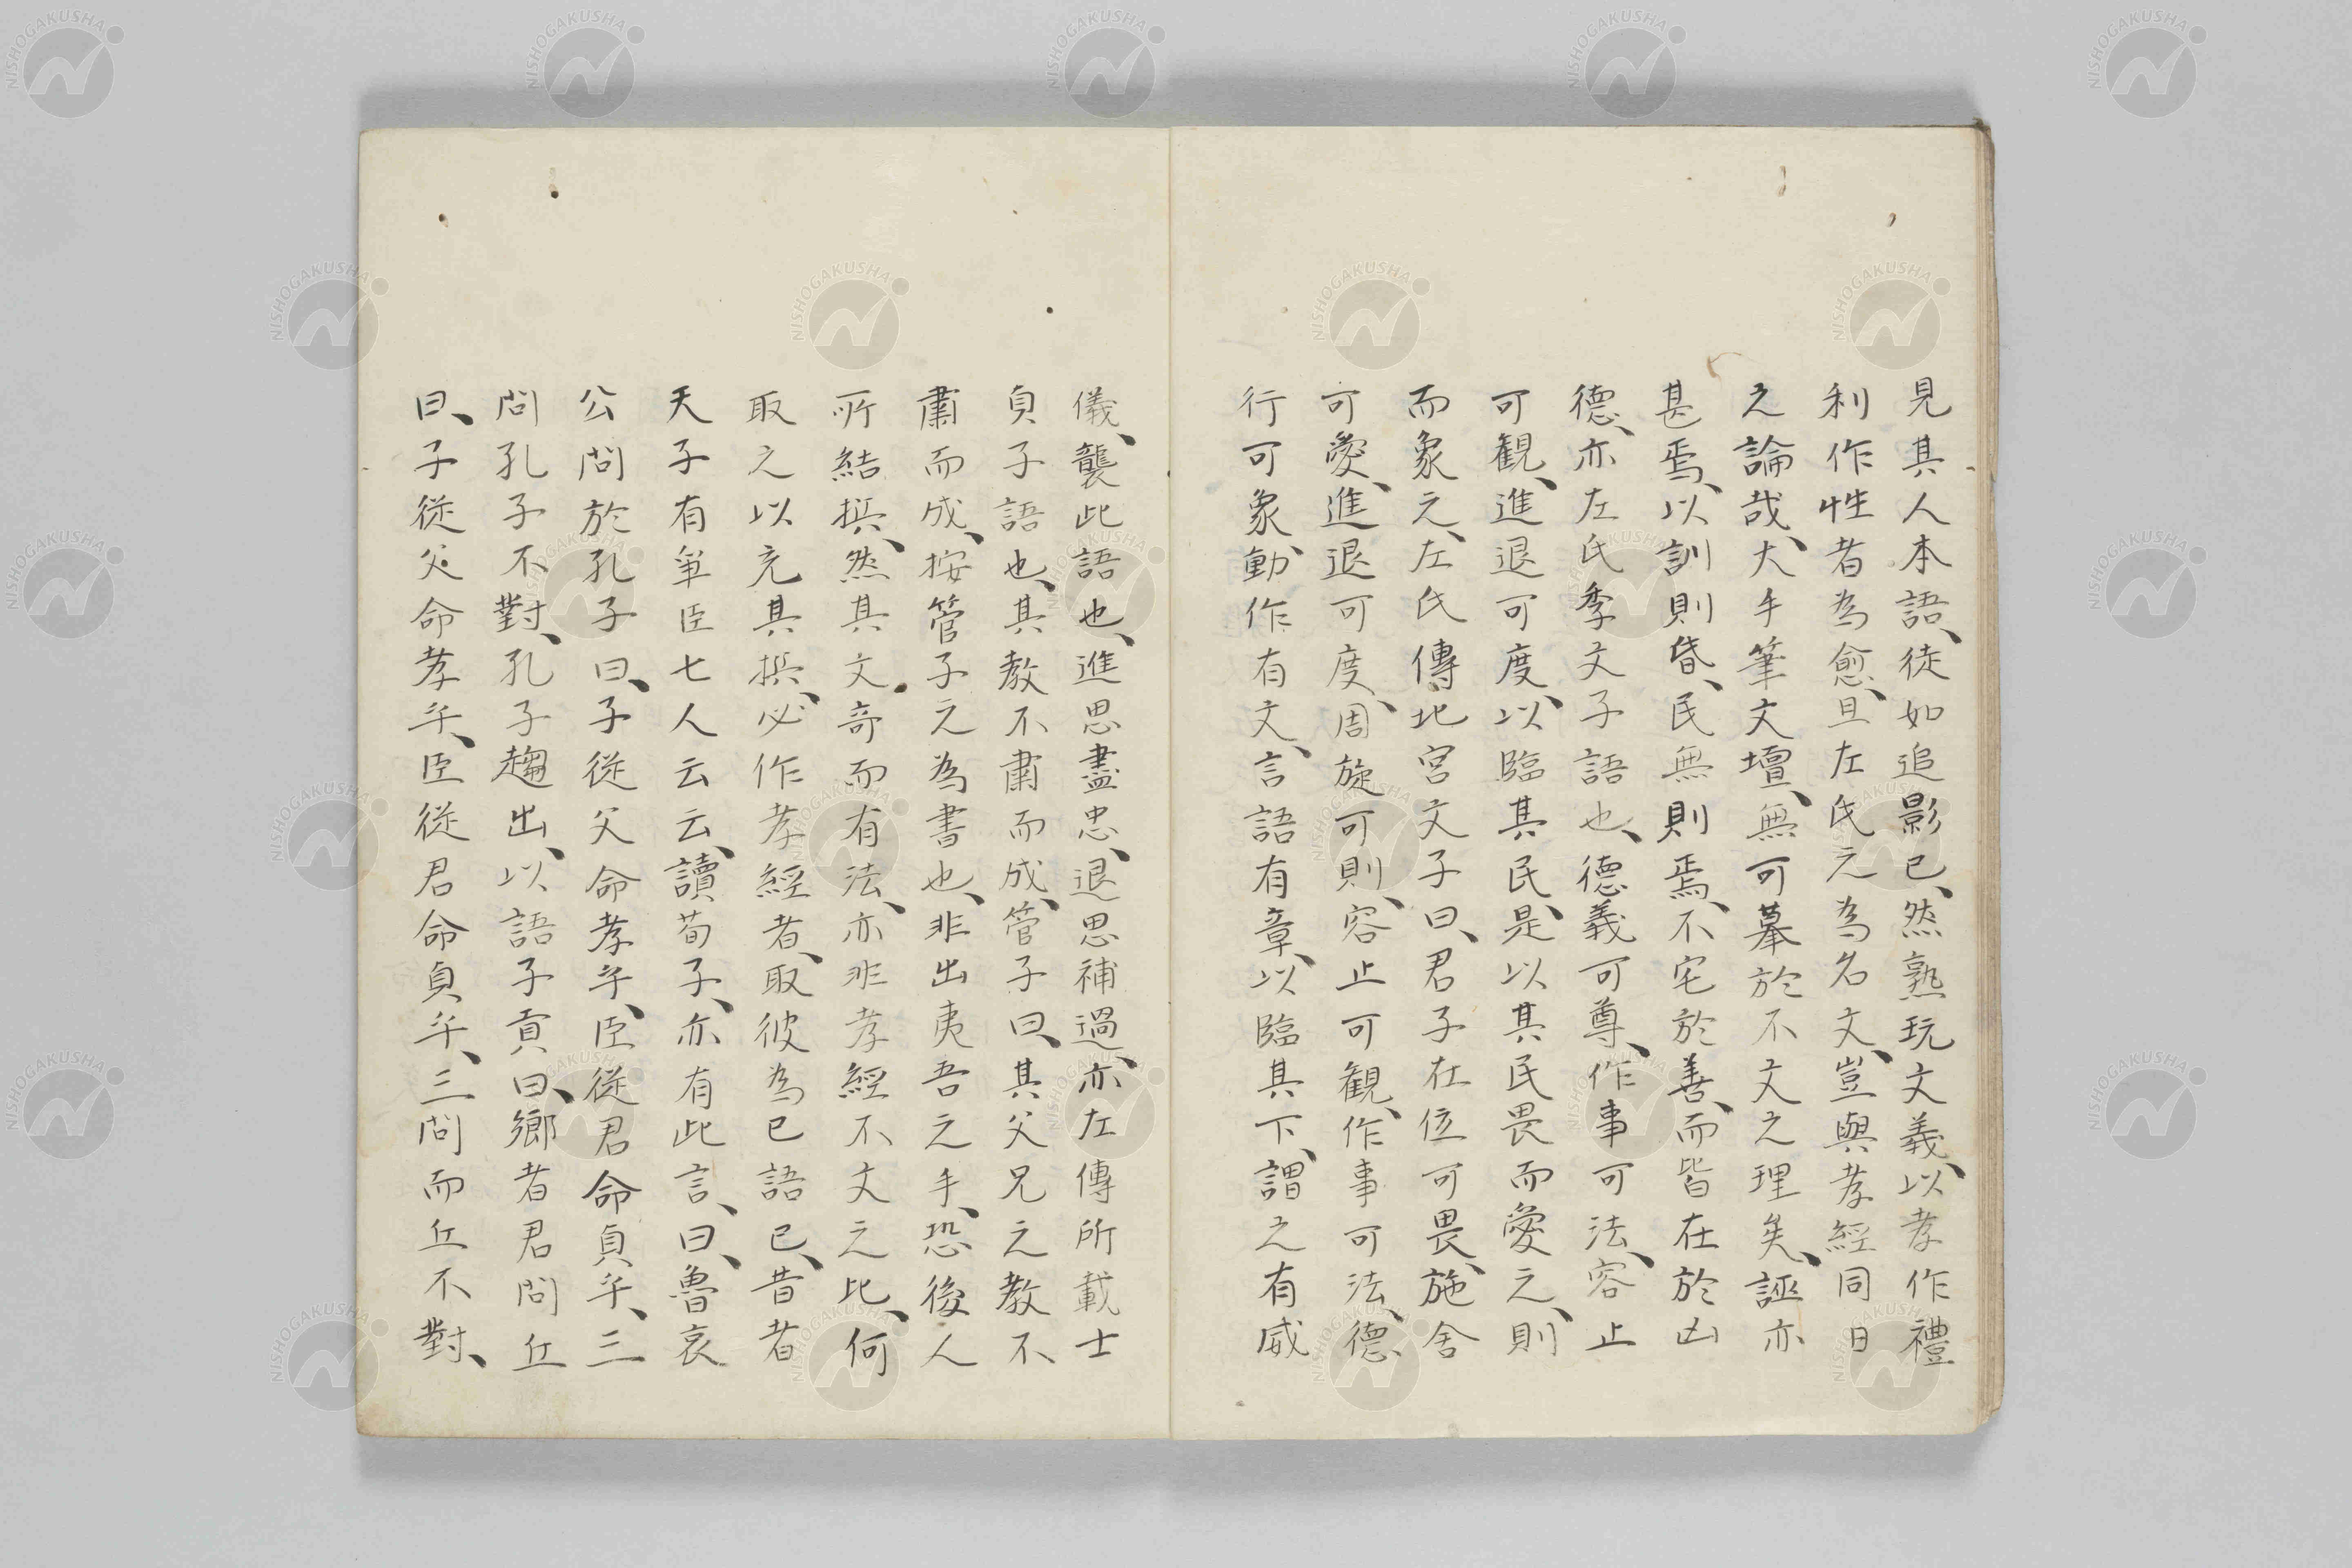 見其人本語、徒如追影已、然熟玩文義、以孝作禮
利作性者為愈、且左氏之為名文、豈與孝經同日
之論哉、大手筆文壇、無可摹於不文之理矣、誣亦
甚焉、以訓則昏、民無則焉、不宅於善、而皆在於凶
德、亦左氏季文子語也、德義可尊、作事可法、容止
可観、進退可度、以臨其民、是以其民畏而愛之、則
而象之、左氏傳北宮文子曰、君子在位可畏、施舍
可愛、進退可度、周旋可則、容止可観、作事可法、德
行可象、動作有文、言語有章、以臨其下、謂之有威
儀、襲此語也、進思盡忠、退思補過、亦左傳所載士
貞子語也、其教不肅而成、管子曰、其父兄之教不
肅而成、按管子之為書也、非出夷吾之手、恐後人
所結撰、然其文奇而有法、亦非孝經不文之比、何
取之以充其撰、必作孝經者、取彼為已語已、昔者
天子有爭臣七人云云、讀荀子、亦有此言、曰、魯哀
公問於孔子曰、子從父命孝乎、臣從君命貞乎、三
問孔子不對、孔子趨出、以語子貢曰、鄉者君問丘
曰、子從父命孝乎、臣從君命貞乎、三問而丘不對、
NISHOGAKUSHA